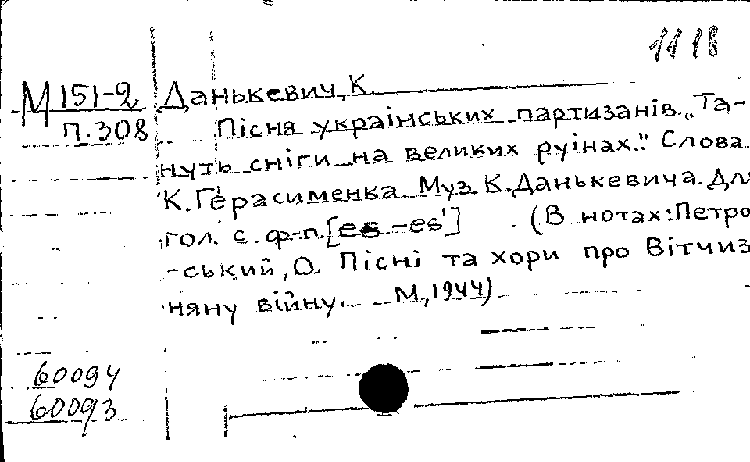 1118
М 151-2
п.308
Данькевич, К.
Пісня українських партизанів „Та-
нуть сніги на великих руінах." Слова
К. Герасименка Муз К. Данькевича. Для
гол. с. ф-п. [es -es']  (В нотах: Петро
-ський, О. Пісні та хори про Вітчиз
няну війну. М, 1944)
60094
60093